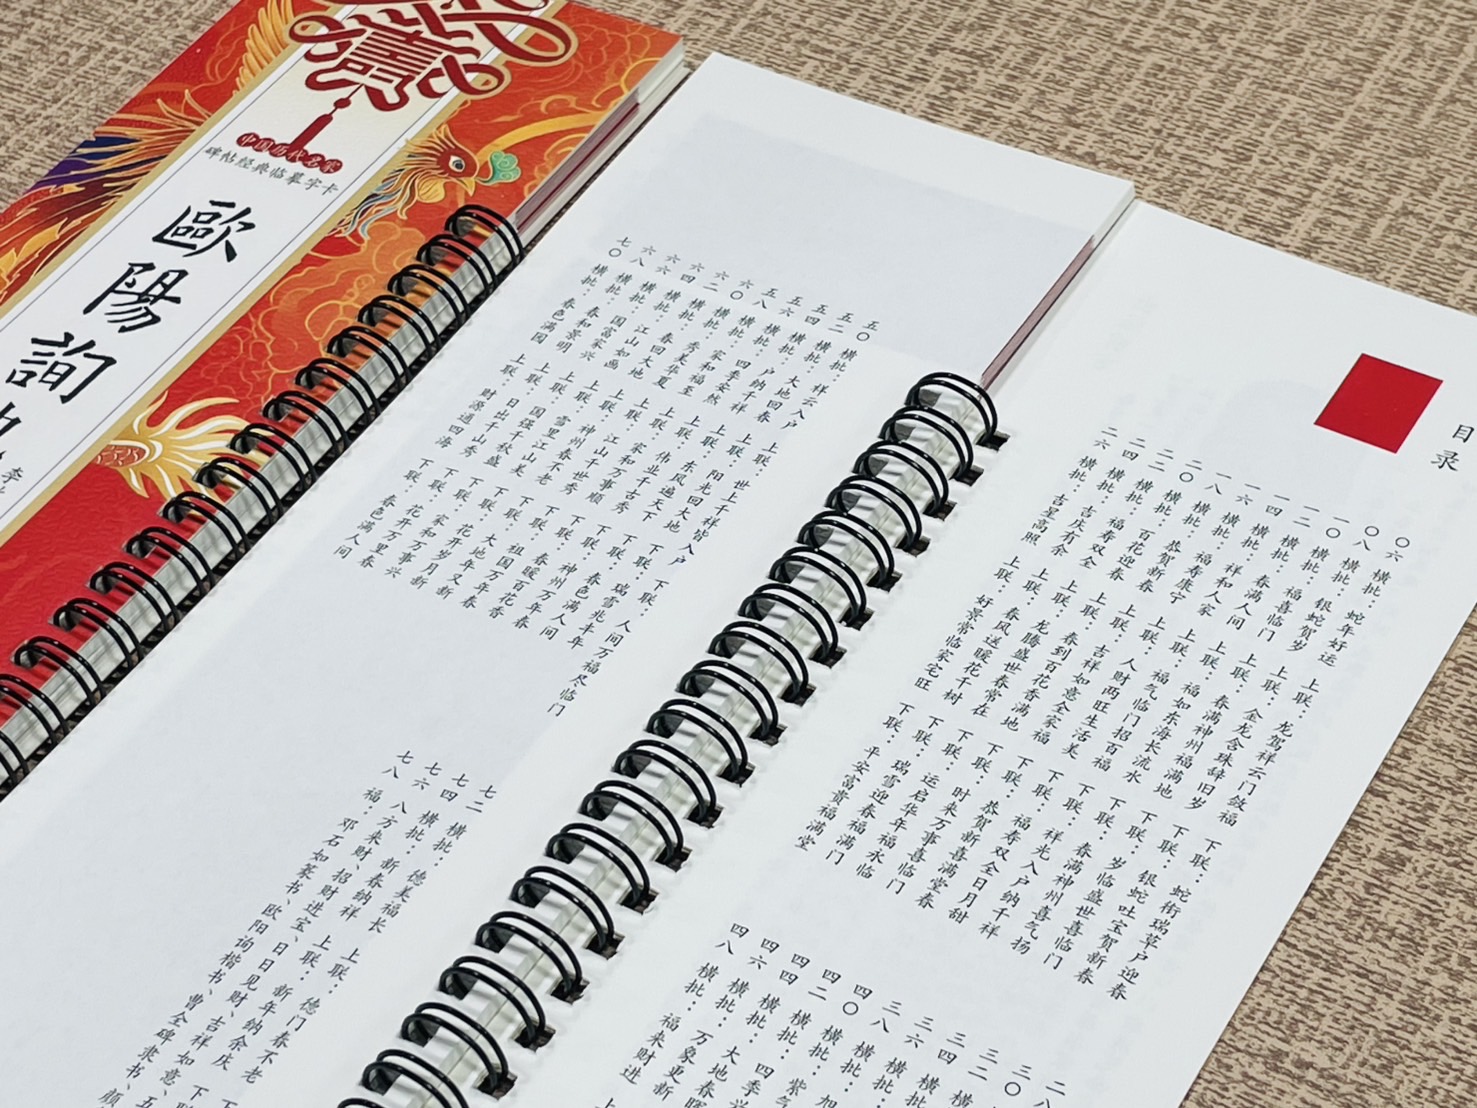 中国历代名家
碑帖经典临摹字卡
歐陽詢
目录
〇六 横批：蛇年好运 上联：龙驾祥云门敛福 下联：蛇衔瑞草户迎春
〇八 横批：银蛇贺岁 上联：金龙含珠辞旧岁 下联：银蛇吐宝贺新春
一〇 横批：福喜临门 上联：春满神州福满地 下联：岁临盛世喜临门
一二 横批：春满人间 上联：福如东海长流水 下联：春满神州喜气扬
一四 横批：祥和人家 上联：福气临门招百福 下联：祥光入户纳千祥
一六 横批：福寿康宁 上联：人财两旺生活美 下联：福寿双全日月甜
一八 横批：恭贺新春 上联：吉祥如意全家福 下联：恭贺新喜满堂春
二〇 横批：百花迎春 上联：春到百花香满地 下联：时来万事喜临门
二二 横批：福寿双全 上联：龙腾盛世春常在 下联：运启华年福永临
二四 横批：吉庆有余 上联：春风送暖花千树 下联：瑞雪迎春福满门
二六 横批：吉星高照 上联：好景常临家宅旺 下联：平安富贵福满堂
二八
三〇
三二
三四 横
三六 横批：
三八 横批：加
四〇 横批：紫气
四二 横批：四季兴
四四 横批：大地春晖
四六 横批：万象更新
四八 横批：福来财进 上
五〇 横批：祥云入户 上联：世上千祥皆入户 下联：人间万福尽临门
五二 横批：大地回春 上联：阳光回大地 下联：瑞雪兆丰年
五四 横批：户纳千祥 上联：东风遍天下 下联：春色满人间
五六 横批：四季安然 上联：伟业千古秀 下联：神州万年春
五八 横批：家和福至 上联：家和万事顺 下联：春暖百花香
六〇 横批：秀美华夏 上联：江山千世秀 下联：祖国万年春
六二 横批：春回大地 上联：神州春不老 下联：大地年又新
六四 横批：江山如画 上联：雪里江山美 下联：花开岁月新
六六 横批：国富家兴 上联：国强千秋盛 下联：家和万事兴
六八 横批：春和景明 上联：日出千山秀 下联：花开万里春
七〇 横批：春色满园 上联：财源通四海 下联：春色满人间
七二 横批：德美福长 上联：德门春不老 下
七四 横批：新春纳祥 上联：新年纳余庆 下
七六 八方来财、招财进宝、日日见财、吉祥如意、五
七八 福：邓石如篆书、欧阳询楷书、曹全碑隶书、颜